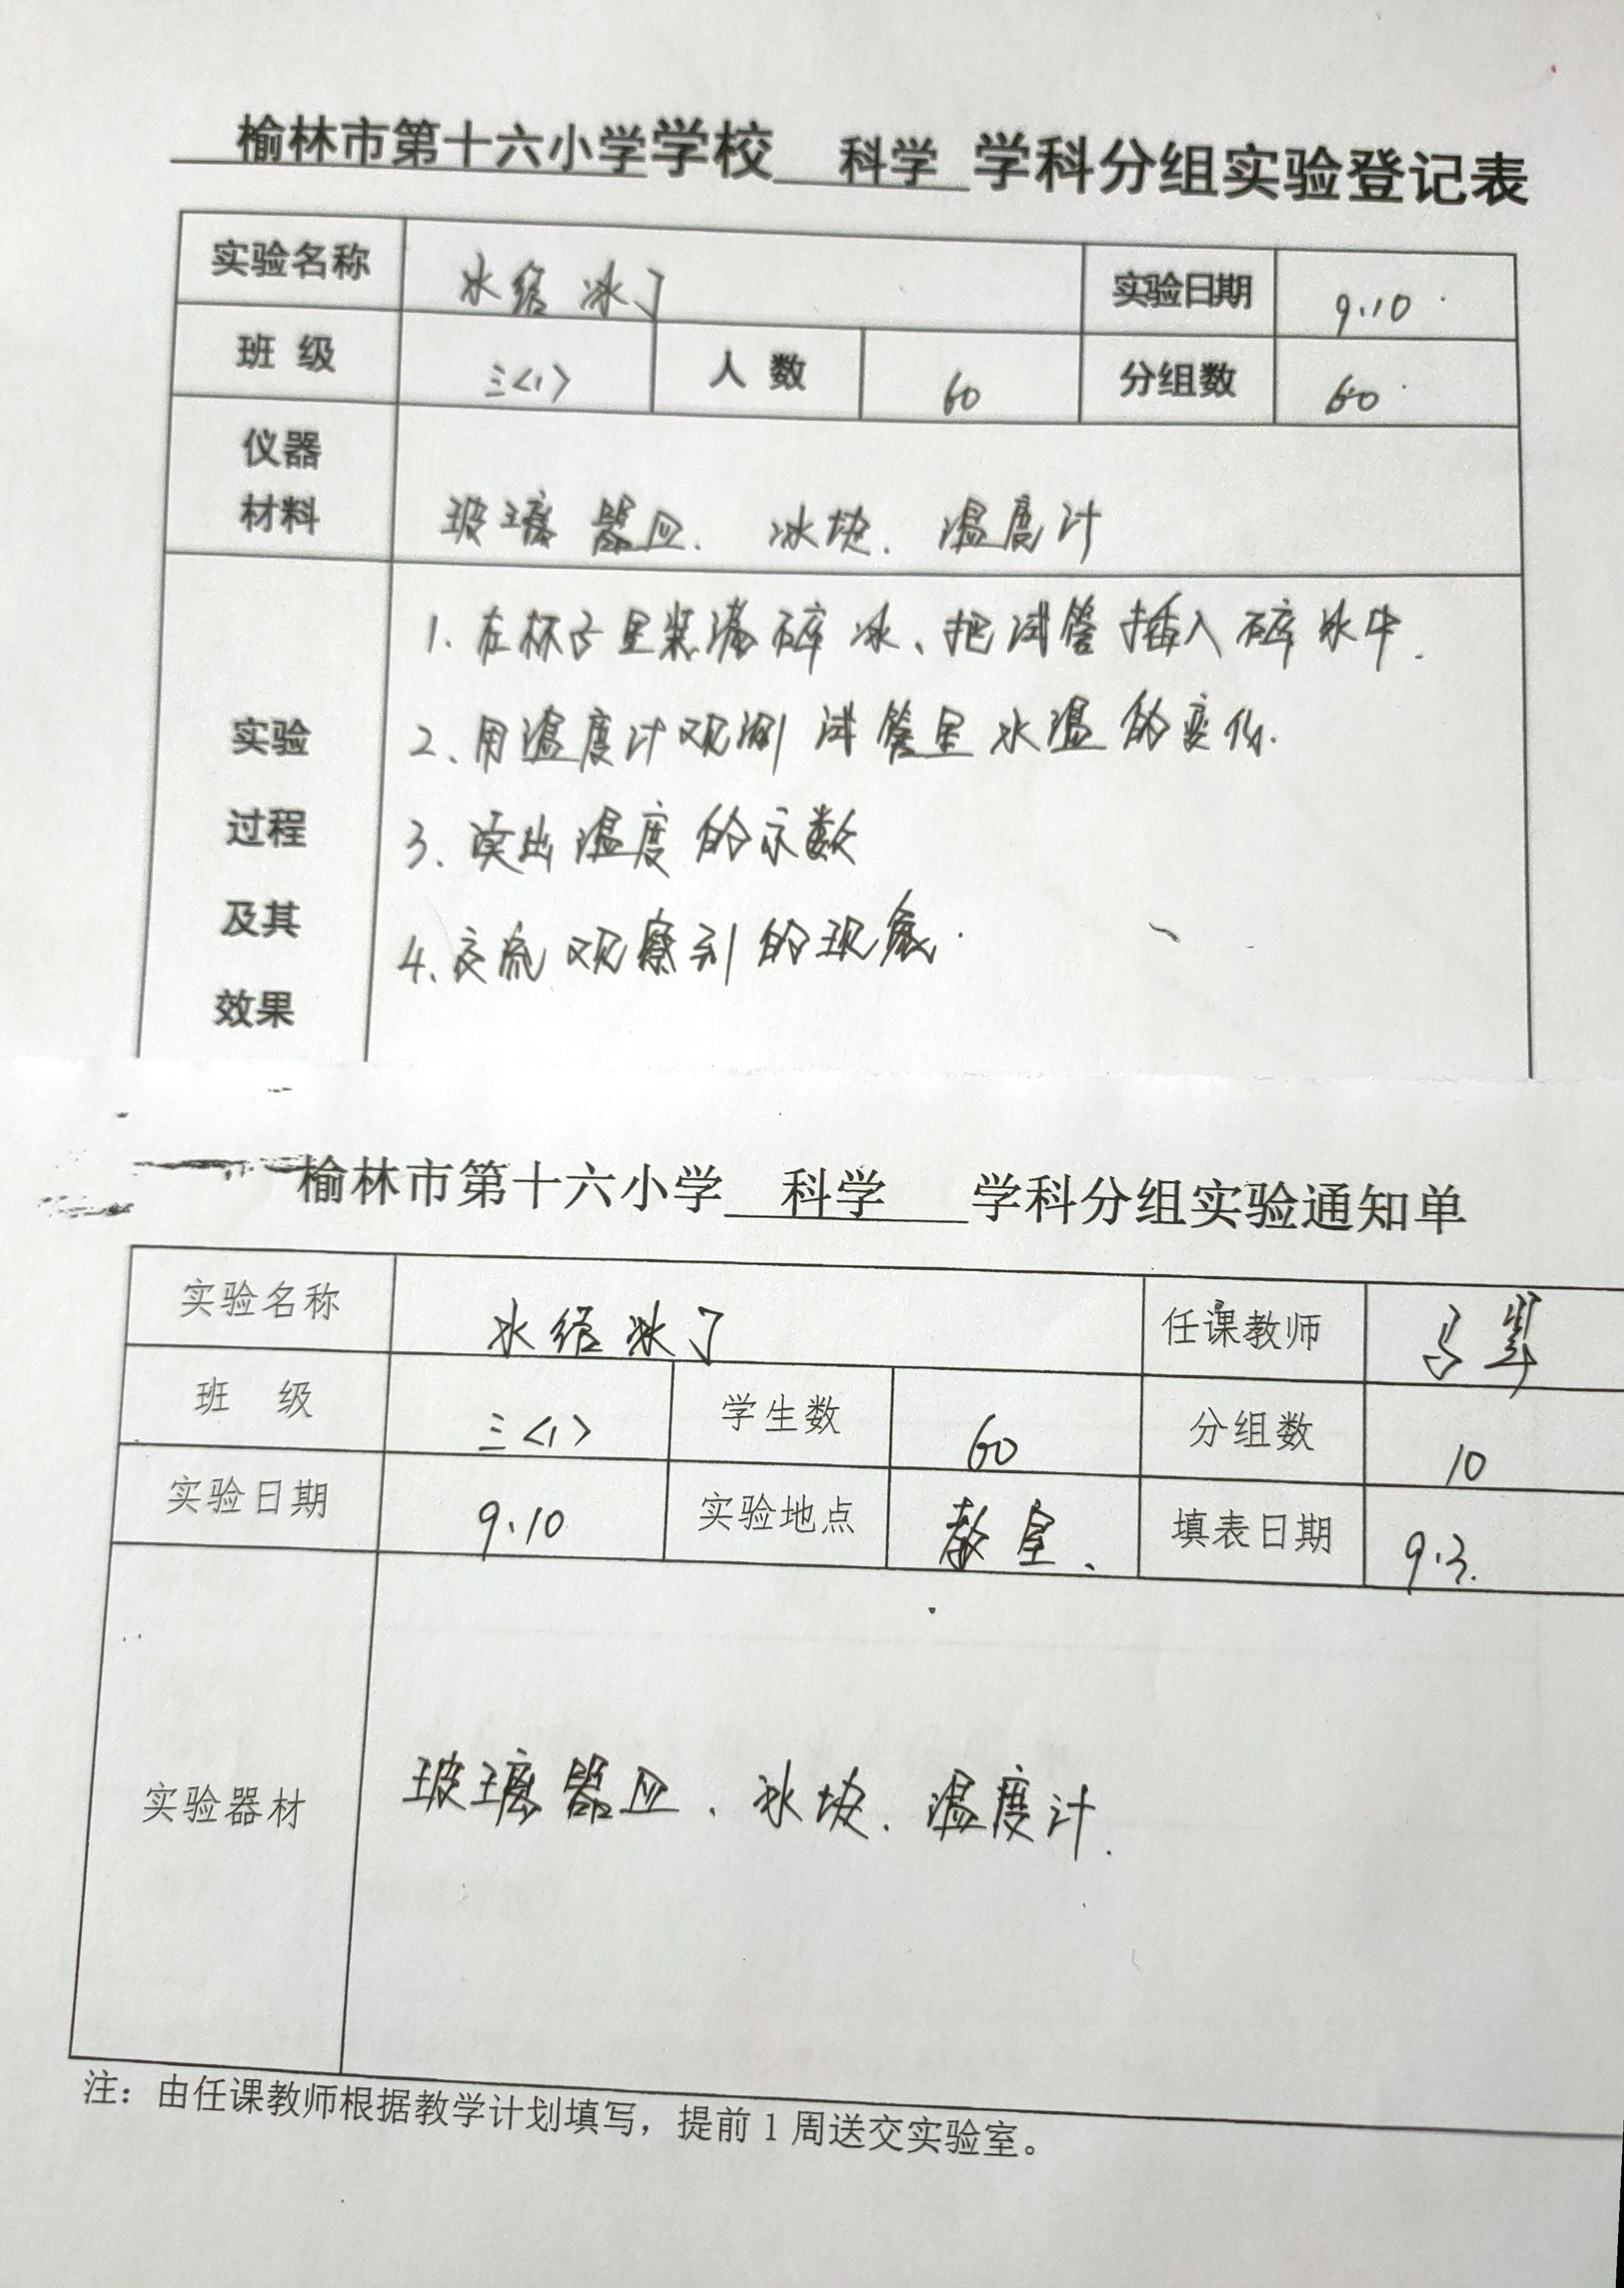 榆林市第十六小学学校 科学 学科分组实验登记表
实验名称 水结冰了 实验日期 9.10
班 级 三<1> 人 数 60 分组数 60
仪器
材料 玻璃器皿. 冰块. 温度计
1. 在杯子里装满碎冰、把试管插入碎冰中.
实验 2、用温度计观测试管里水温的变化.
过程 3、读出温度的示数
及其 4、交流观察到的现象.
效果
榆林市第十六小学 科学 学科分组实验通知单
实验名称 水结冰了 任课教师 马
班 级 三<1> 学生数 60 分组数 10
实验日期 9.10 实验地点 教室、 填表日期 9.3.
实验器材 玻璃器皿、冰块. 温度计.
注：由任课教师根据教学计划填写，提前1周送交实验室。